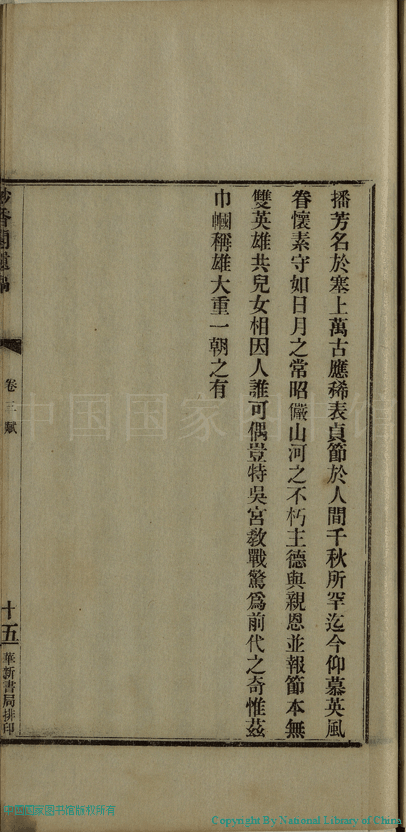 播芳名於塞上萬古應稀表貞節於人間千秋所罕迄今仰慕英風
眷懷素守如日月之常昭儼山河之不朽主德與親恩並報節本無
雙英雄共兒女相因人誰可偶豈特吳宮教戰驚爲前代之奇惟茲
巾幗稱雄大重一朝之有
卷三賦
十五
華新書局排印
中国国家图书馆版权所有
Copyright By National Library of China